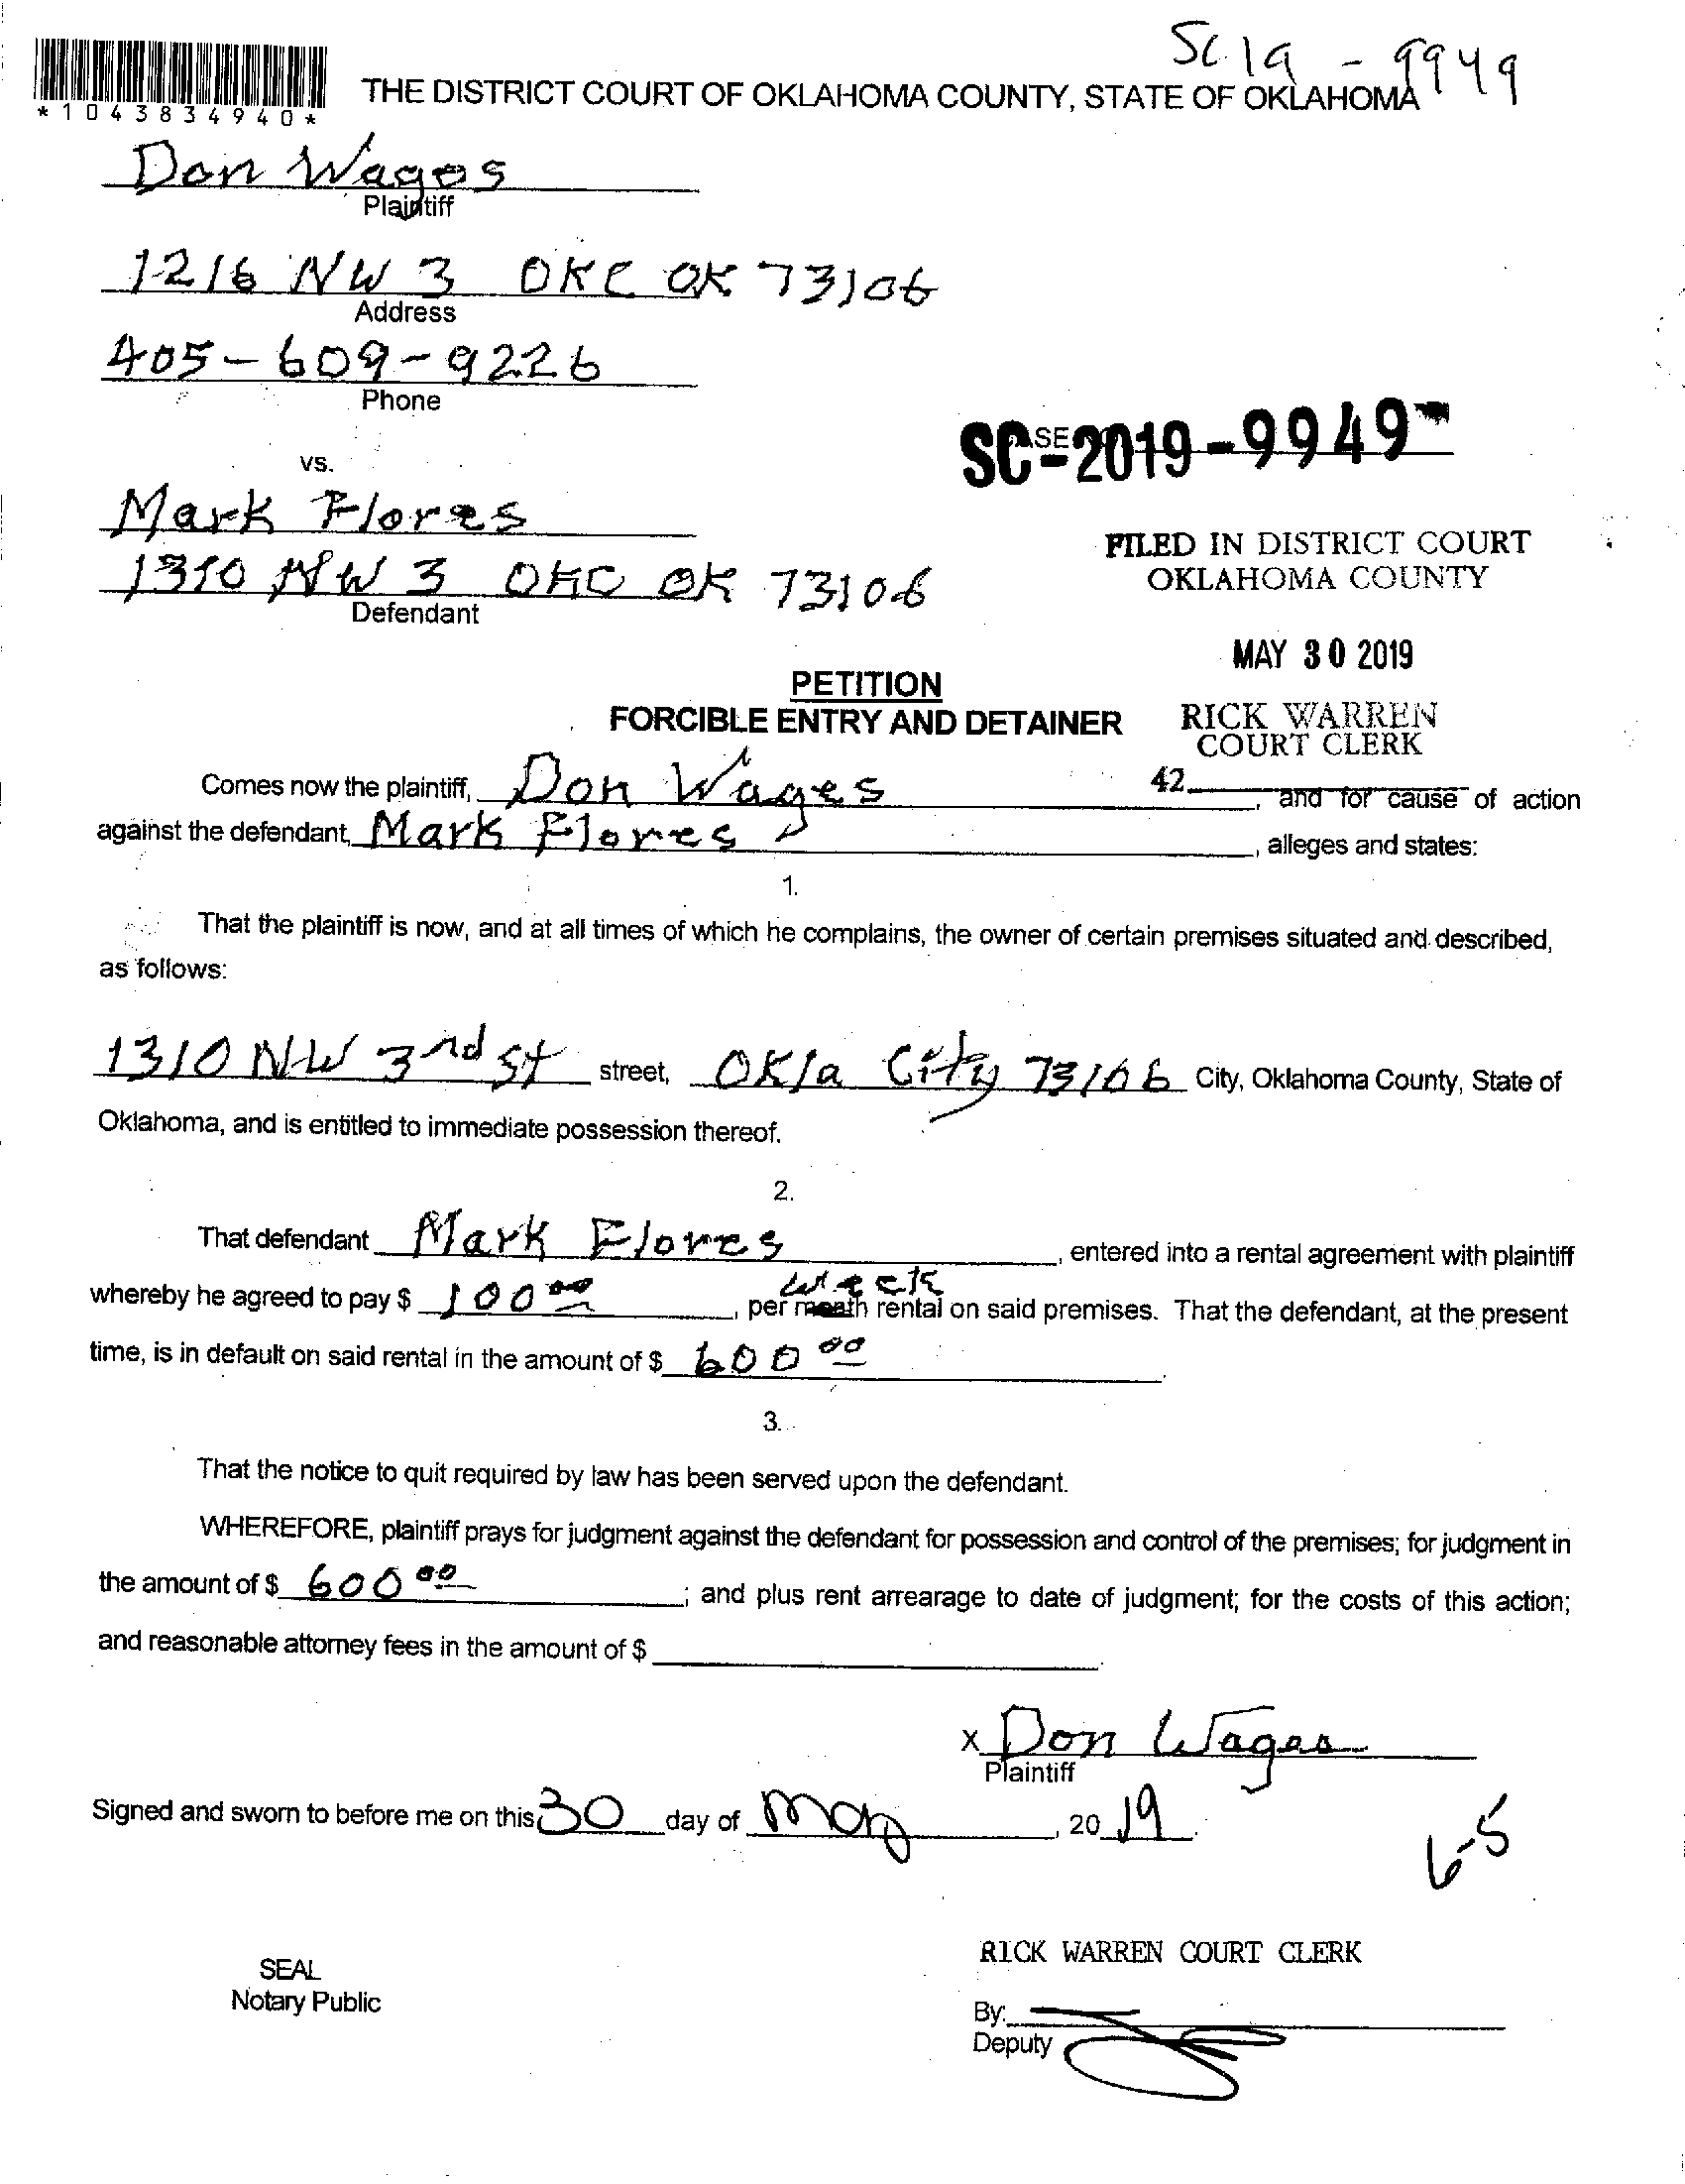 SC 19 - 9949
*1043834940*
THE DISTRICT COURT OF OKLAHOMA COUNTY, STATE OF OKLAHOMA
Don Wages
Plaintiff
1216 NW 3 OKC OK 73106
Address
405-609-9226
Phone
SC-2019-9949
vs.
Mark Flores
1310 NW 3 OKC OK 73106
Defendant
FILED IN DISTRICT COURT
OKLAHOMA COUNTY
MAY 30 2019
RICK WARREN
COURT CLERK
42
PETITION
FORCIBLE ENTRY AND DETAINER
Comes now the plaintiff, Don Wages, and for cause of action
against the defendant, Mark Flores, alleges and states:
1.
That the plaintiff is now, and at all times of which he complains, the owner of certain premises situated and described,
as follows:
1310 NW 3rd St street, Okla City 73106 City, Oklahoma County, State of
Oklahoma, and is entitled to immediate possession thereof.
2.
That defendant Mark Flores, entered into a rental agreement with plaintiff
week
whereby he agreed to pay $ 100 00, per month rental on said premises. That the defendant, at the present
time, is in default on said rental in the amount of $ 600 00
3.
That the notice to quit required by law has been served upon the defendant.
WHEREFORE, plaintiff prays for judgment against the defendant for possession and control of the premises; for judgment in
the amount of $ 600 00; and plus rent arrearage to date of judgment; for the costs of this action;
and reasonable attorney fees in the amount of $
x Don Wages
Plaintiff
Signed and sworn to before me on this 30 day of May, 20 19.
6-5
RICK WARREN COURT CLERK
SEAL
Notary Public
By:
Deputy